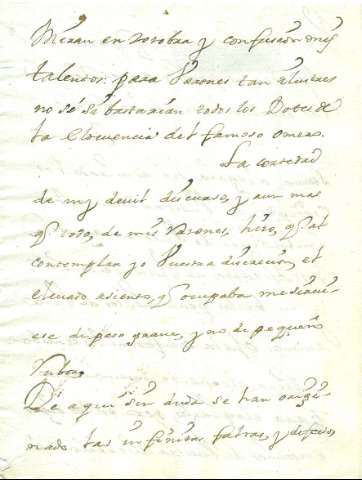 Miran en zozobra y confusion mis
talentos. para Varones tan
no sé si bastarian todos los Dotes de
la Elocuencia del famoso omero.
La cortedad
de mi devil discurso, y aun mas
q todo, de mis razones, hizo, q al
contemplar yo Vuestra discrecion, el
elevado asiento, q ocupaba me
ese de peso grave, y no de pequeño
rubor,
De aqui sin duda se han origi
nado las infinitas faltas, y defectos,